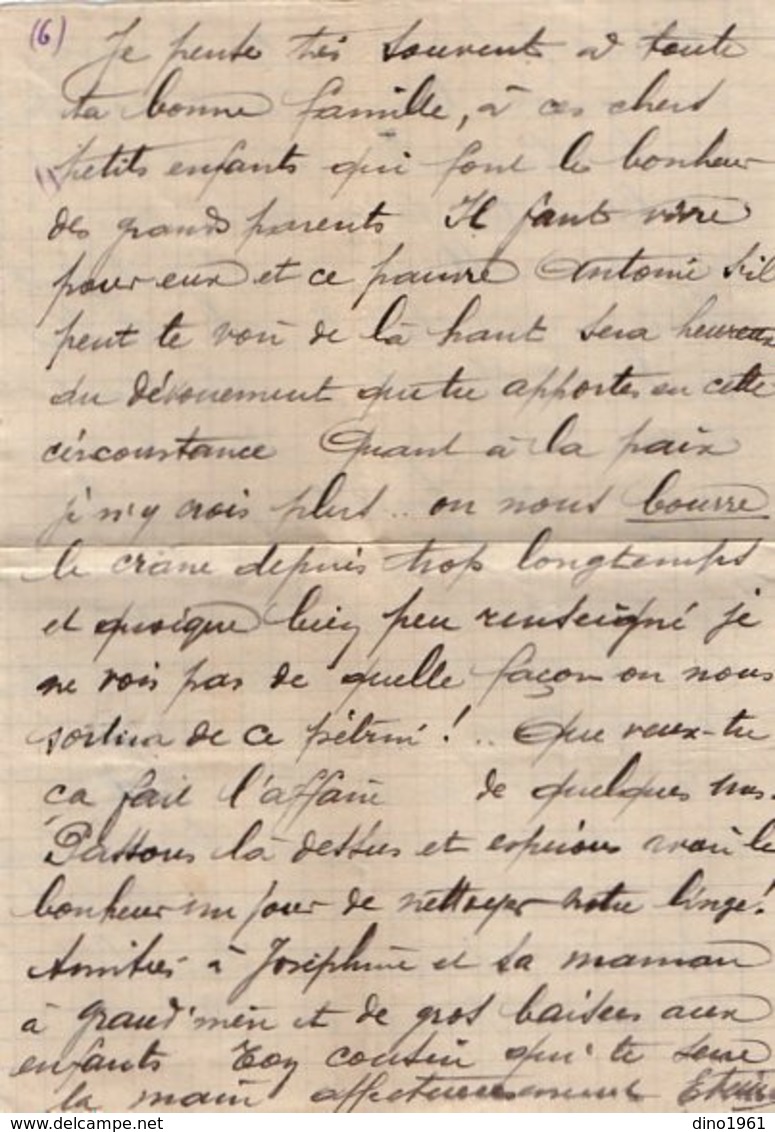 (6)
Je pense très souvent à toute
ta bonne famille, à ces chers
petits enfants qui font le bonheur
des grands parents Il faut vivre
pour eux et ce pauvre Antoine s'il
peut te voir de là haut sera heureux
du dévouement que tu apportes en cette
circonstance Quant à la paix
je n'y crois plus .. on nous bourre
le crane depuis trop longtemps
et quoique bien peu renseigné je
ne vois pas de quelle façon on nous
sortira de ce pétrin ! .. Que veux-tu
ça fait l'affaire de quelques uns.
Passons là dessus et espérons avoir le
bonheur un jour de nettoyer notre linge !
Amitiés à Joséphine et sa maman
à grand'mère et de gros baisers aux
enfants Ton cousin qui te serre
la main affectueusement
dino1961